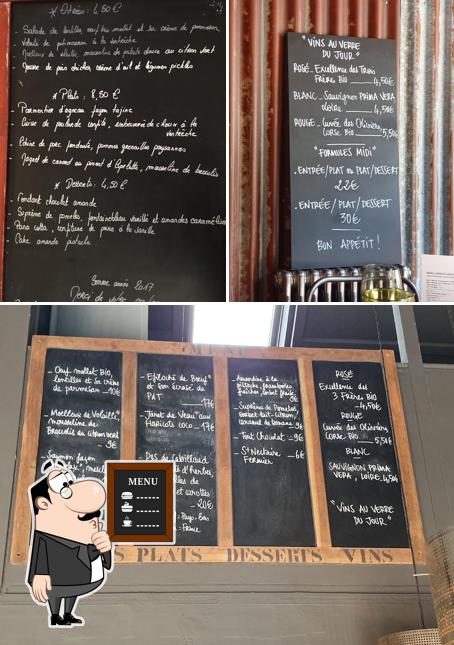 * Entrées : 4,50 €
- Salade de lentilles, oeuf bio mollet et sa crème de parmesan
- Velouté de potimarron à la ventrèche
- Moelleux de volaille, mousseline de patate douce au citron vert
* Plats : 8,50 €
- Parmentier d'agneau façon tajine
- Cuisse de pintade confite, embeurrée de choux à la
ventrèche
- Echine de porc fondante, pommes grenailles paysannes
* Desserts : 4,50 €
- Fondant chocolat amande
- Suprême de pomelos, fontainebleau vanillé et amandes caramélisées
- Pana cotta, confiture de poire à la vanille
- Cake amande pistache
Bonne année 2017
Merci de votre
"VINS AU VERRE
DU JOUR"
ROSÉ - Excellence des Trois
Frères BIO 4,50€
BLANC - Sauvignon PRIMA VERA
Loire 4,50€
ROUGE - Cuvée des Oliviers
CORSE BIO 5,50€
"FORMULES MIDI"
. ENTRÉE/PLAT ou PLAT/DESSERT
22€
. ENTRÉE/PLAT/DESSERT
30€
BON APPÉTIT!
- Oeuf mollet BIO,
lentilles et sa crème
de parmesan - 10€
- Moelleux de Volaille,
mousseline de
Brocolis au citron vert
9€
- Saumon façon
- Effiloché de Boeuf
et son écrasé de
PAT
17€
- Jarret de Veau aux
Haricots coco - 17€
- Dos de Cabillaud
d'herbes,
et carottes
- 20€
: Pays-Bas
= France
- Amandine à la
pistache, framboises
fraîches, sorbet fraise
9€
- Suprême de Pomelos,
sorbet lait-citron,
caramel de Romarin 9€
- Tout Chocolat - 9€
- St Nectaire - 6€
Fermier
ROSÉ
Excellence des
3 Frères BIO
- 4,50€
ROUGE
Cuvée des Oliviers
CORSE BIO - 5,50€
BLANC
SAUVIGNON PRIMA
VERA, LOIRE 4,50€
"VINS AU VERRE
DU JOUR"
MENU
S PLATS DESSERTS VINS